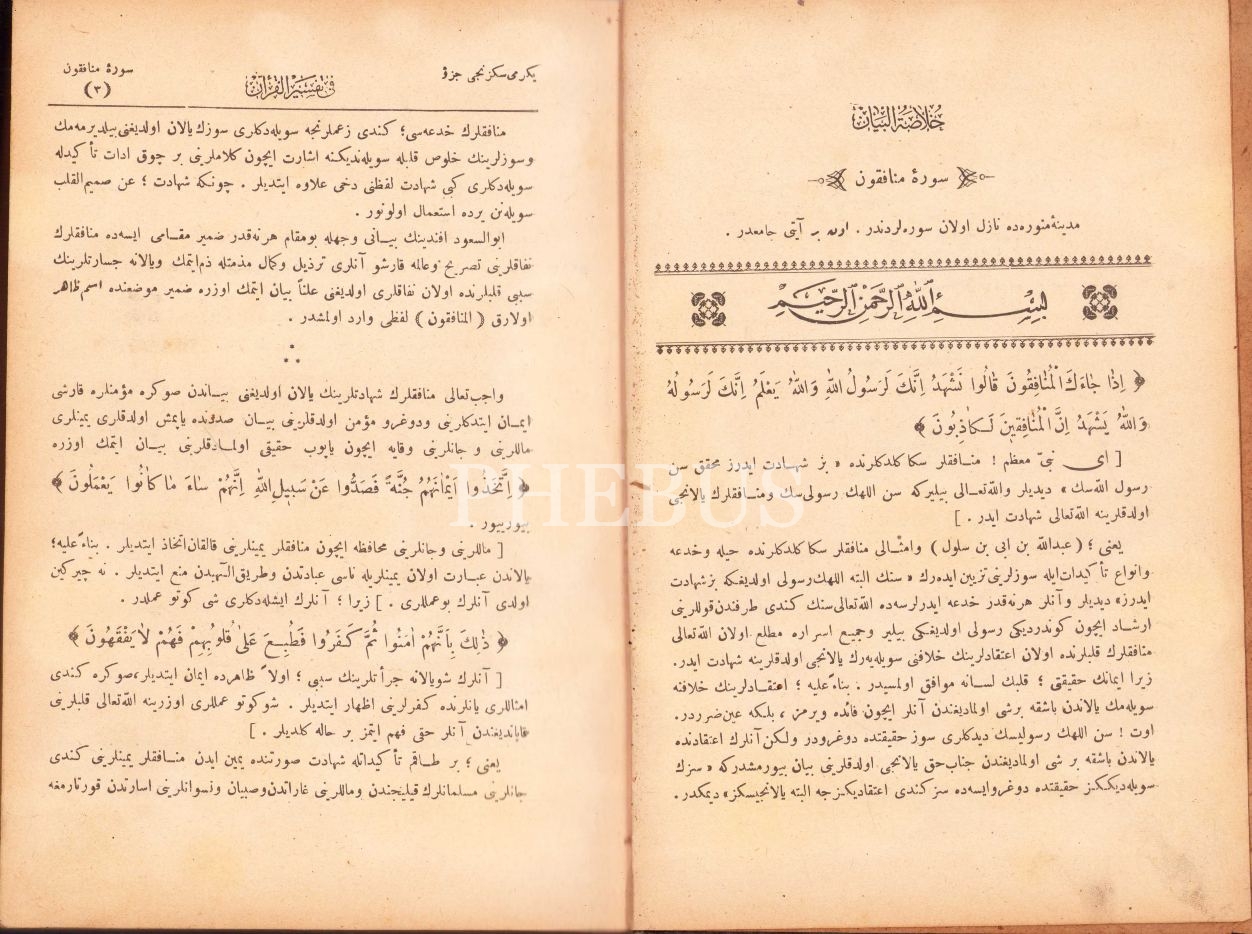 خلاصة البيان
سورۀ منافقون
مدينۀ منورەده نازل اولان سورەلردندر . اون بر آيتى جامعدر .
بسم الله الرحمن الرحيم
﴿ اِذَا جَاءَكَ الْمُنَافِقُونَ قَالُوا نَشْهَدُ اِنَّكَ لَرَسُولُ اللهِ وَاللهُ يَعْلَمُ اِنَّكَ لَرَسُولُهُ
وَاللهُ يَشْهَدُ اِنَّ الْمُنَافِقِينَ لَكَاذِبُونَ ﴾
[ اى نبىّ معظم ! منافقلر سكا كلدكلرنده « بز شهادت ايدرز محقق سن
رسول الله سك » ديديلر والله تعالى بيليركه سن اللهك رسولى سك ومنافقلرك يالانجى
اولدقلرينه الله تعالى شهادت ايدر . ]
يعنى ؛ ( عبدالله بن ابى بن سلول ) وامثالى منافقلر سكا كلدكلرنده حيله وخدعه
وانواع تأكيدات ايله سوزلرينى تزيين ايدەرك « سنك البته اللهك رسولى اولديغكه بز شهادت
ايدرز » ديديلر وآنلر هرنەقدر خدعه ايدرلرسەده الله تعالى سنك كندى طرفندن قوللرينى
ارشاد ايچون كوندرديكى رسولى اولديغكى بيلير وجميع اسراره مطلع اولان الله تعالى
منافقلرك قلبلرنده اولان اعتقادلرينك خلافنى سويليەرك يالانجى اولدقلرينه شهادت ايدر.
زيرا ايمانك حقيقتى ؛ قلبك لسانه موافق اولمسيدر . بناءً عليه ؛ اعتقادلرينك خلافنه
سويلەمك يالاندن باشقه برشى اولماديغندن آنلر ايچون فائده ويرمز ، بلكه عين ضرردر.
اوت ! سن اللهك رسوليسك ديدكلرى سوز حقيقتده دوغرودر ولكن آنلرك اعتقادنده
يالاندن باشقه بر شى اولماديغندن جناب حق يالانجى اولدقلرينى بيان بيورمشدركه « سزك
سويلەديككز حقيقتده دوغرو ايسەده سز كندى اعتقاديكزجه البته يالانجيسكز » ديمكدر.
يكرمى سكزنجى جزؤ
فى تفسير القرآن
سورۀ منافقون
(٣)
منافقلرك خدعەسى ؛ كندى زعملرنجه سويلەدكلرى سوزك يالان اولديغنى بيلديرمەمك
وسوزلرينك خلوص قلبله سويلەنديكنه اشارت ايچون كلاملرينى بر چوق ادات تأكيدله
سويلەدكلرى كبى شهادت لفظنى دخى علاوه ايتديلر . چونكه شهادت ؛ عن صميم القلب
سويلەنن يرده استعمال اولونور .
ابوالسعود افندينك بيانى وجهله بومقام هر نەقدر ضمير مقامى ايسەده منافقلرك
نفاقلرينى تصريح وعالمه قارشو آنلرى ترذيل وكمال مذمتله ذم ايتمك ويالانه جسارتلرينك
سببى قلبلرنده اولان نفاقلرى اولديغنى علناً بيان ايتمك اوزره ضمير موضعنده اسم ظاهر
اولارق ( المنافقون ) لفظى وارد اولمشدر .
واجب تعالى منافقلرك شهادتلرينك يالان اولديغنى بياندن صوكره مؤمنلره قارشى
ايمان ايتدكلرينى ودوغرو مؤمن اولدقلرينى بيان صددنده يايمش اولدقلرى يمينلرى
ماللرينى و جانلرينى وقايه ايچون يايوب حقيقى اولمادقلرينى بيان ايتمك اوزره
﴿ اِتَّخَذُوا اَيْمَانَهُمْ جُنَّةً فَصَدُّوا عَنْ سَبِيلِ اللهِ اِنَّهُمْ سَاءَ مَا كَانُوا يَعْمَلُونَ ﴾
بيورييور .
[ ماللرينى وجانلرينى محافظه ايچون منافقلر يمينلرينى قالقان اتخاذ ايتديلر . بناءً عليه ؛
يالاندن عبارت اولان يمينلريله ناسى عبادتدن وطريق الٓهيدن منع ايتديلر . نه چيركين
اولدى آنلرك بوعمللرى . ] زيرا ؛ آنلرك ايشلەدكلرى شى كوتو عملدر .
﴿ ذٰلِكَ بِاَنَّهُمْ اٰمَنُوا ثُمَّ كَفَرُوا فَطُبِعَ عَلٰى قُلُوبِهِمْ فَهُمْ لَا يَفْقَهُونَ ﴾
[ آنلرك شويالانه جرأتلرينك سببى ؛ اولاً ظاهرده ايمان ايتديلر ، صوكره كندى
امثاللرى يانلرنده كفرلرينى اظهار ايتديلر . شو كوتو عمللرى اوزرينه الله تعالى قلبلرينى
قاپاديغندن آنلر حقى فهم ايتمز بر حاله كلديلر . ]
يعنى ؛ بر طاقم تأكيداتله شهادت صورتنده يمين ايدن منافقلر يمينلرينى كندى
جانلرينى مسلمانلرك قيلينجندن وماللرينى غارتدن وصبيان ونسوانلرينى اسارتدن قورتارمغه
PHEBUS